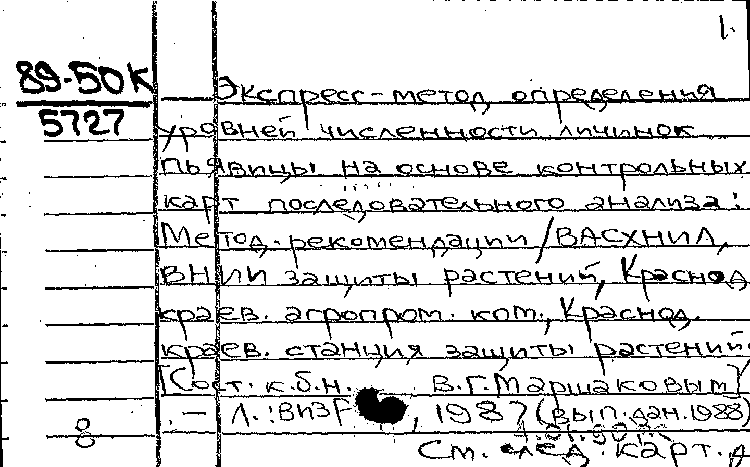 1.
89-50К
5727
Экспресс-метод определения
уровней численности личинок
пьявицы на основе контрольных
карт последовательного анализа:
Метод. рекомендации / ВАСХНИЛ,
ВНИИ защиты растений, Краснод
краев. агропром. ком., Краснод.
краев. станция защиты растений
[Сост. к.б.н. В.Г. Маршаковым]
. — Л.: ВИЗР , 1987 (вып. дан. 1988)
8
См. след. карт.